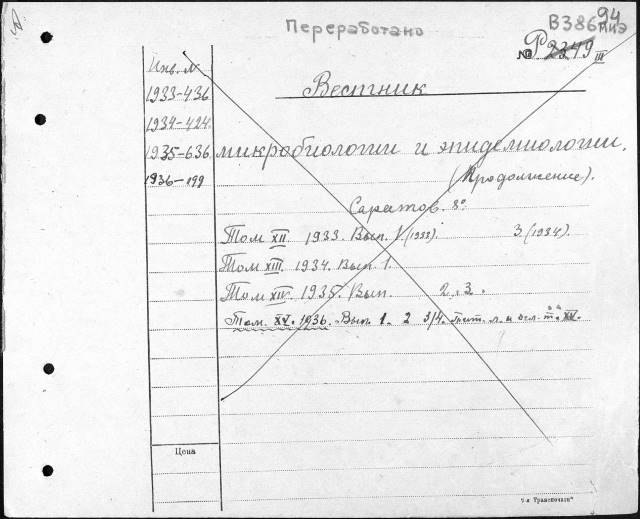 Переработано
В386 94
МИЭ
№ Р2349 III
Инв. №
1933-436
1934-424
1935-636
1936-199
Вестник
микробиологии и эпидемиологии.
(Продолжение).
Саратов. 8°.
Том XII. 1933. Вып. 1. (1933). 3. (1934).
Том XIII. 1934. Вып. 1.
Том XIV. 1935. Вып. 2. 3.
Том. XV. 1936. Вып. 1. 2 3/4. тит. л. и огл. т. XV.
Цена